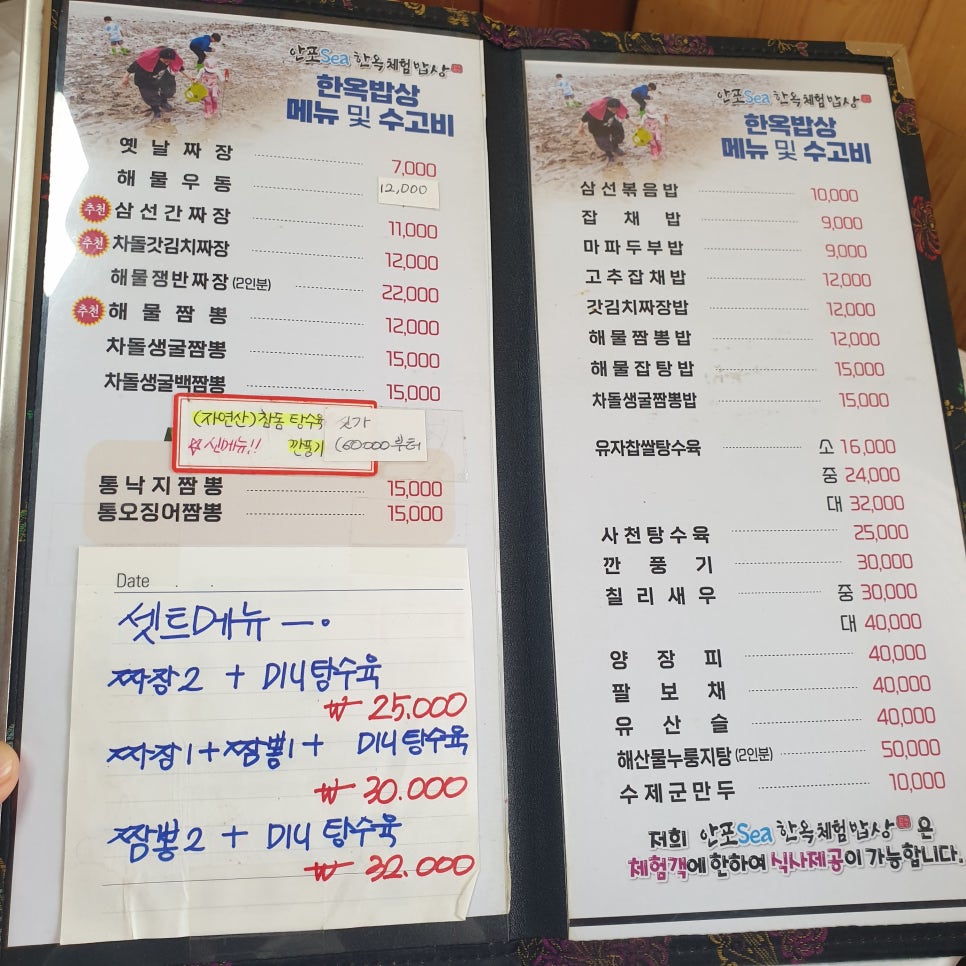 안포Sea 한옥체험밥상
한옥밥상
메뉴 및 수고비
옛날짜장 7,000
해물우동 12,000
추천 삼선간짜장 11,000
추천 차돌갓김치짜장 12,000
해물쟁반짜장 (2인분) 22,000
추천 해물짬뽕 12,000
차돌생굴짬뽕 15,000
차돌생굴백짬뽕 15,000
(자연산)참돔 탕수육 싯가
☆ 신메뉴!! 깐풍기 (60000부터
통낙지짬뽕 15,000
통오징어짬뽕 15,000
Date . .
셋트메뉴 ㅡ.
짜장2 + 미니탕수육
₩ 25.000
짜장1+짬뽕1+ 미니탕수육
₩ 30.000
짬뽕2 + 미니 탕수육
₩ 32.000
안포Sea 한옥체험밥상
한옥밥상
메뉴 및 수고비
삼선볶음밥 10,000
잡채밥 9,000
마파두부밥 9,000
고추잡채밥 12,000
갓김치짜장밥 12,000
해물짬뽕밥 12,000
해물잡탕밥 15,000
차돌생굴짬뽕밥 15,000
유자찹쌀탕수육 소 16,000
중 24,000
대 32,000
사천탕수육 25,000
깐풍기 30,000
칠리새우 중 30,000
대 40,000
양장피 40,000
팔보채 40,000
유산슬 40,000
해산물누룽지탕 (2인분) 50,000
수제군만두 10,000
저희 안포Sea 한옥체험밥상은
체험객에 한하여 식사제공이 가능합니다.